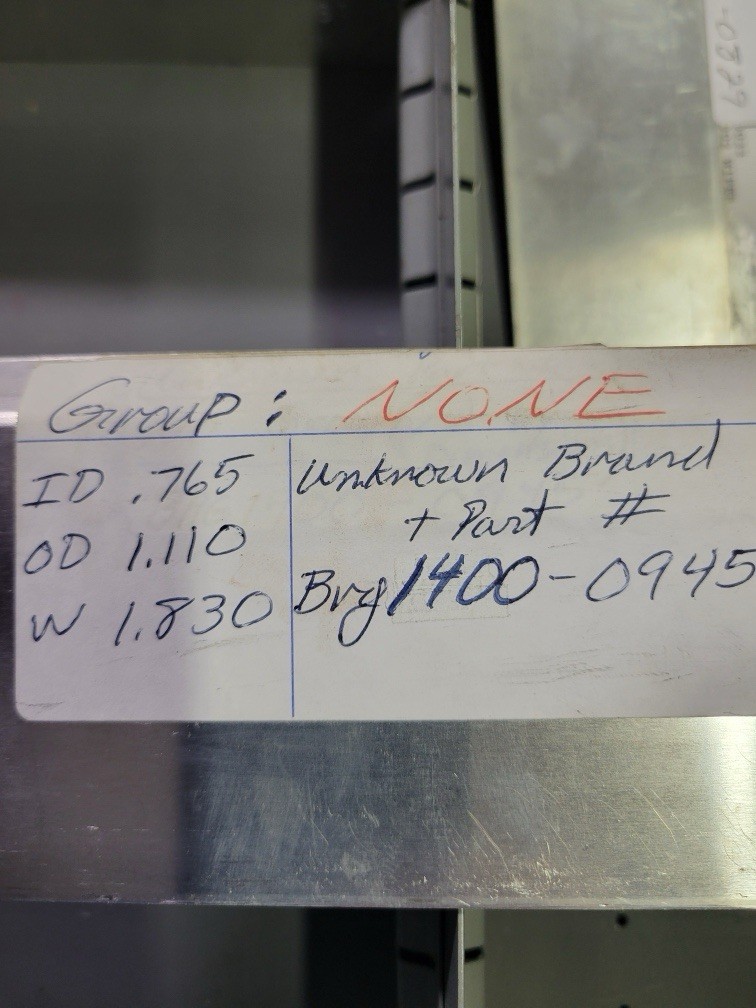 Group: NONE
ID .765
OD 1.110
W 1.830
Unknown Brand
+ Part #
Brg 1400-0945